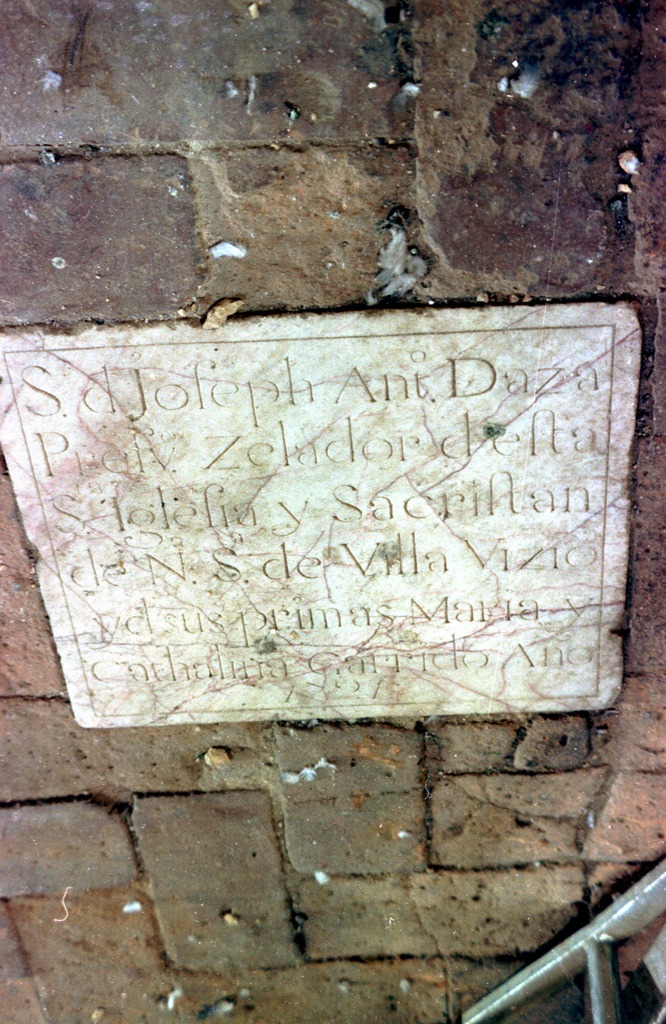 S. d Joſeph Anṫ. Daza
Presv. Zelador d eſta
S. Igleſia y Sacriſtan
de N. S.ª de Villa Vizio
y d sus primas Maria y
Cathalina Garrido Año